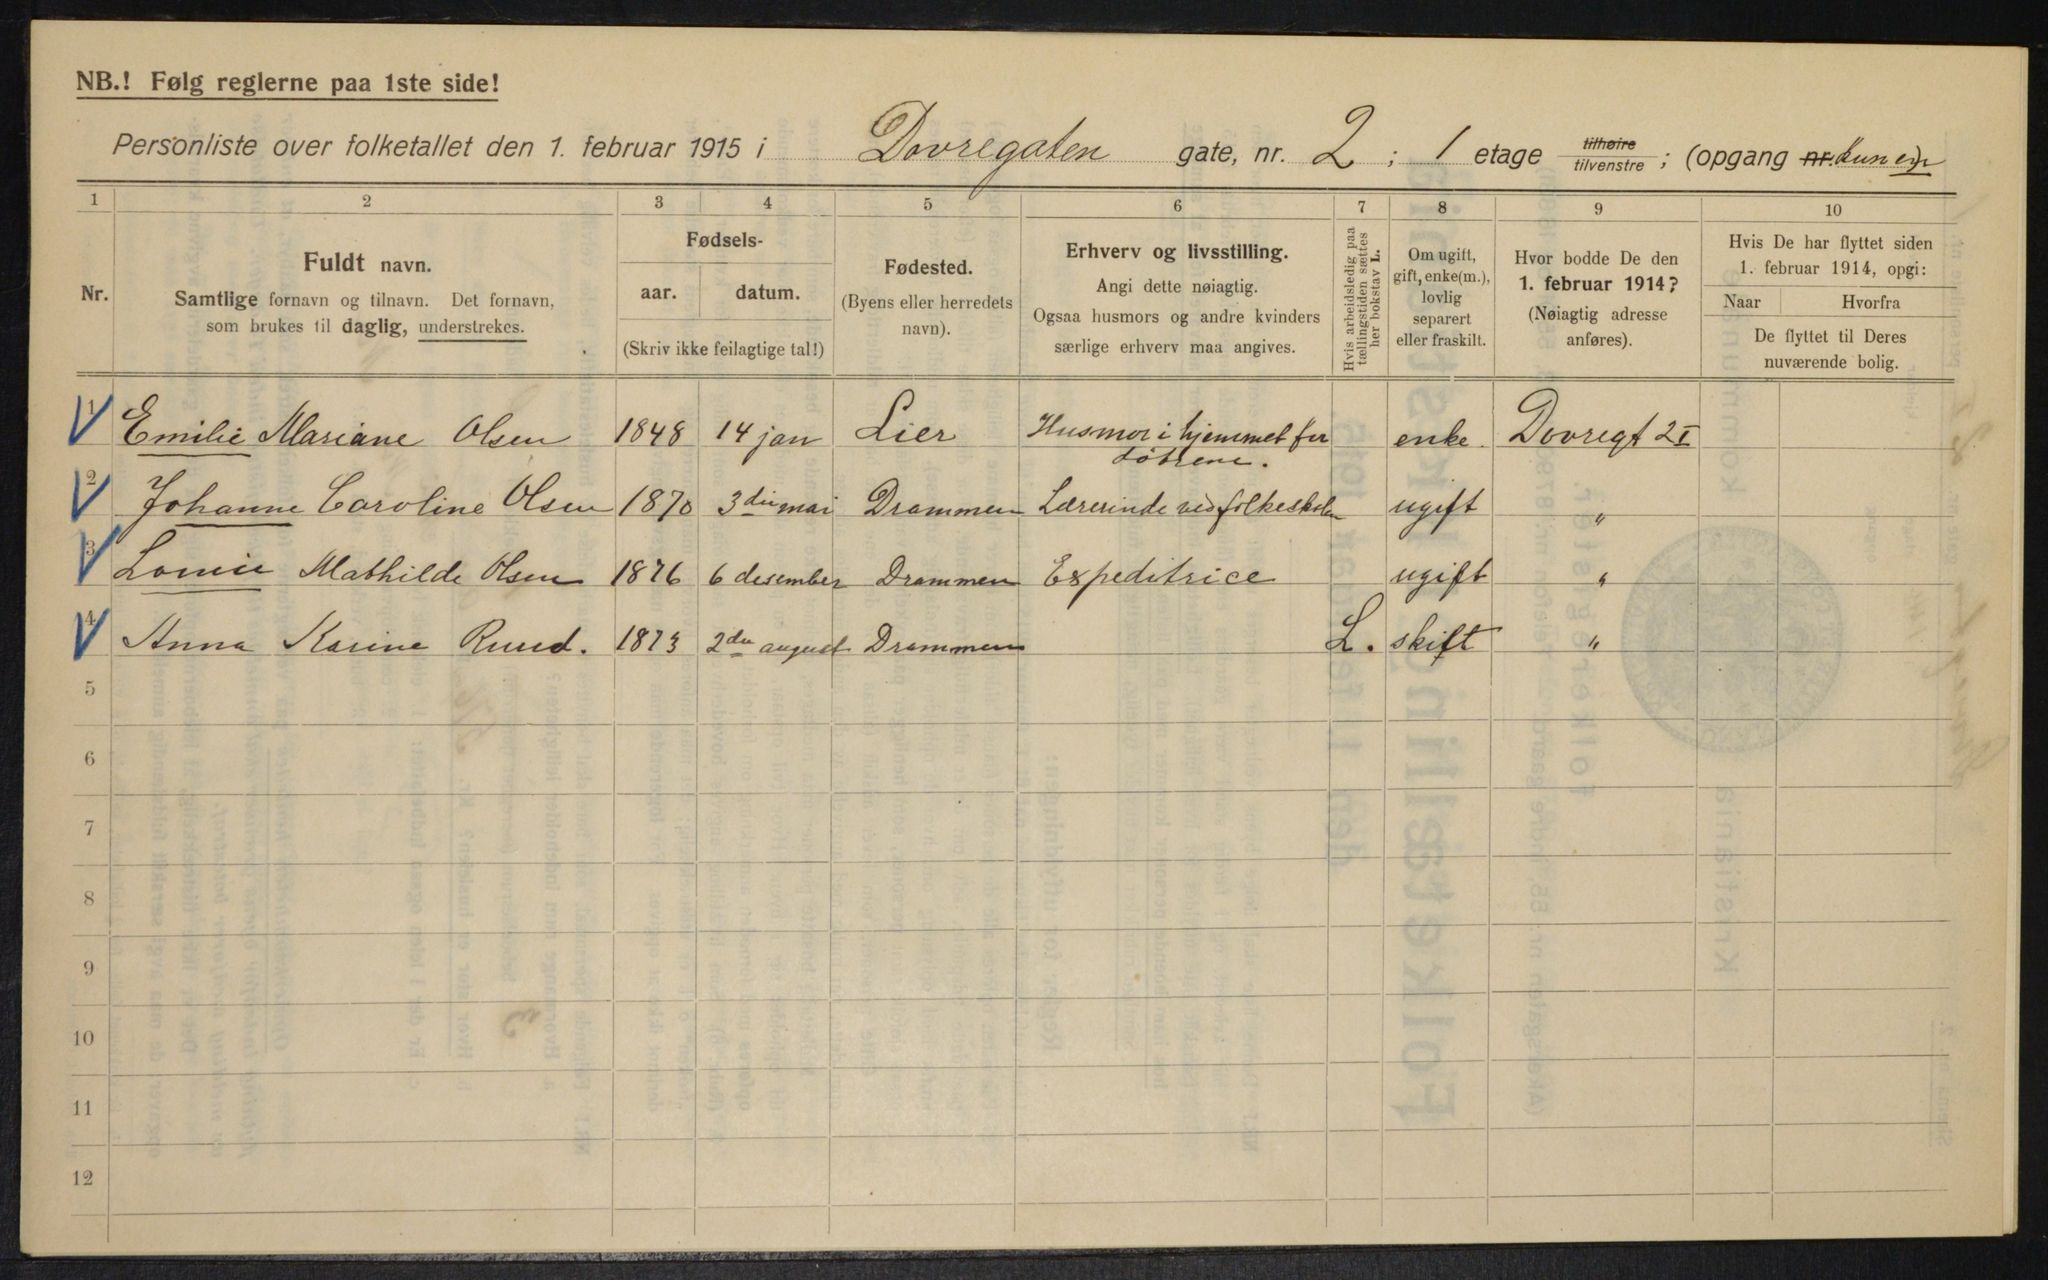 NB.! Følg reglerne paa 1ste side!
Personliste over folketallet den 1. februar 1915 i Dovregaten gate, nr. 2 ; 1 etage tilhøire tilvenstre ; (opgang nr. kun en)
1 2 3 4 5 6 7 8 9 10
Nr.
Fuldt navn.
Samtlige fornavn og tilnavn. Det fornavn,
som brukes til daglig, understrekes.
Fødsels-
aar. datum.
(Skriv ikke feilagtige tal!)
Fødested.
(Byens eller herredets
navn).
Erhverv og livsstilling.
Angi dette nøiagtig.
Ogsaa husmors og andre kvinders
særlige erhverv maa angives.
Hvis arbeidsledig paa
tællingstiden sættes
her bokstav L.
Om ugift,
gift, enke(m.),
lovlig
separert
eller fraskilt.
Hvor bodde De den
1. februar 1914?
(Nøiagtig adresse
anføres).
Hvis De har flyttet siden
1. februar 1914, opgi:
Naar Hvorfra
De flyttet til Deres
nuværende bolig.
1 Emilie Mariane Olsen 1848 14 jan Lier Husmor i hjemmet for døtrene. enke. Dovregt 2 I
2 Johanne Caroline Olsen 1870 3die mai Drammen Lærerinde ved folkeskolen ugift "
3 Lovise Mathilde Olsen 1876 6 desember Drammen Expeditrice ugift "
4 Anna Karine Ruud. 1873 2den august Drammen L. skilt "
5
6
7
8
9
10
11
12